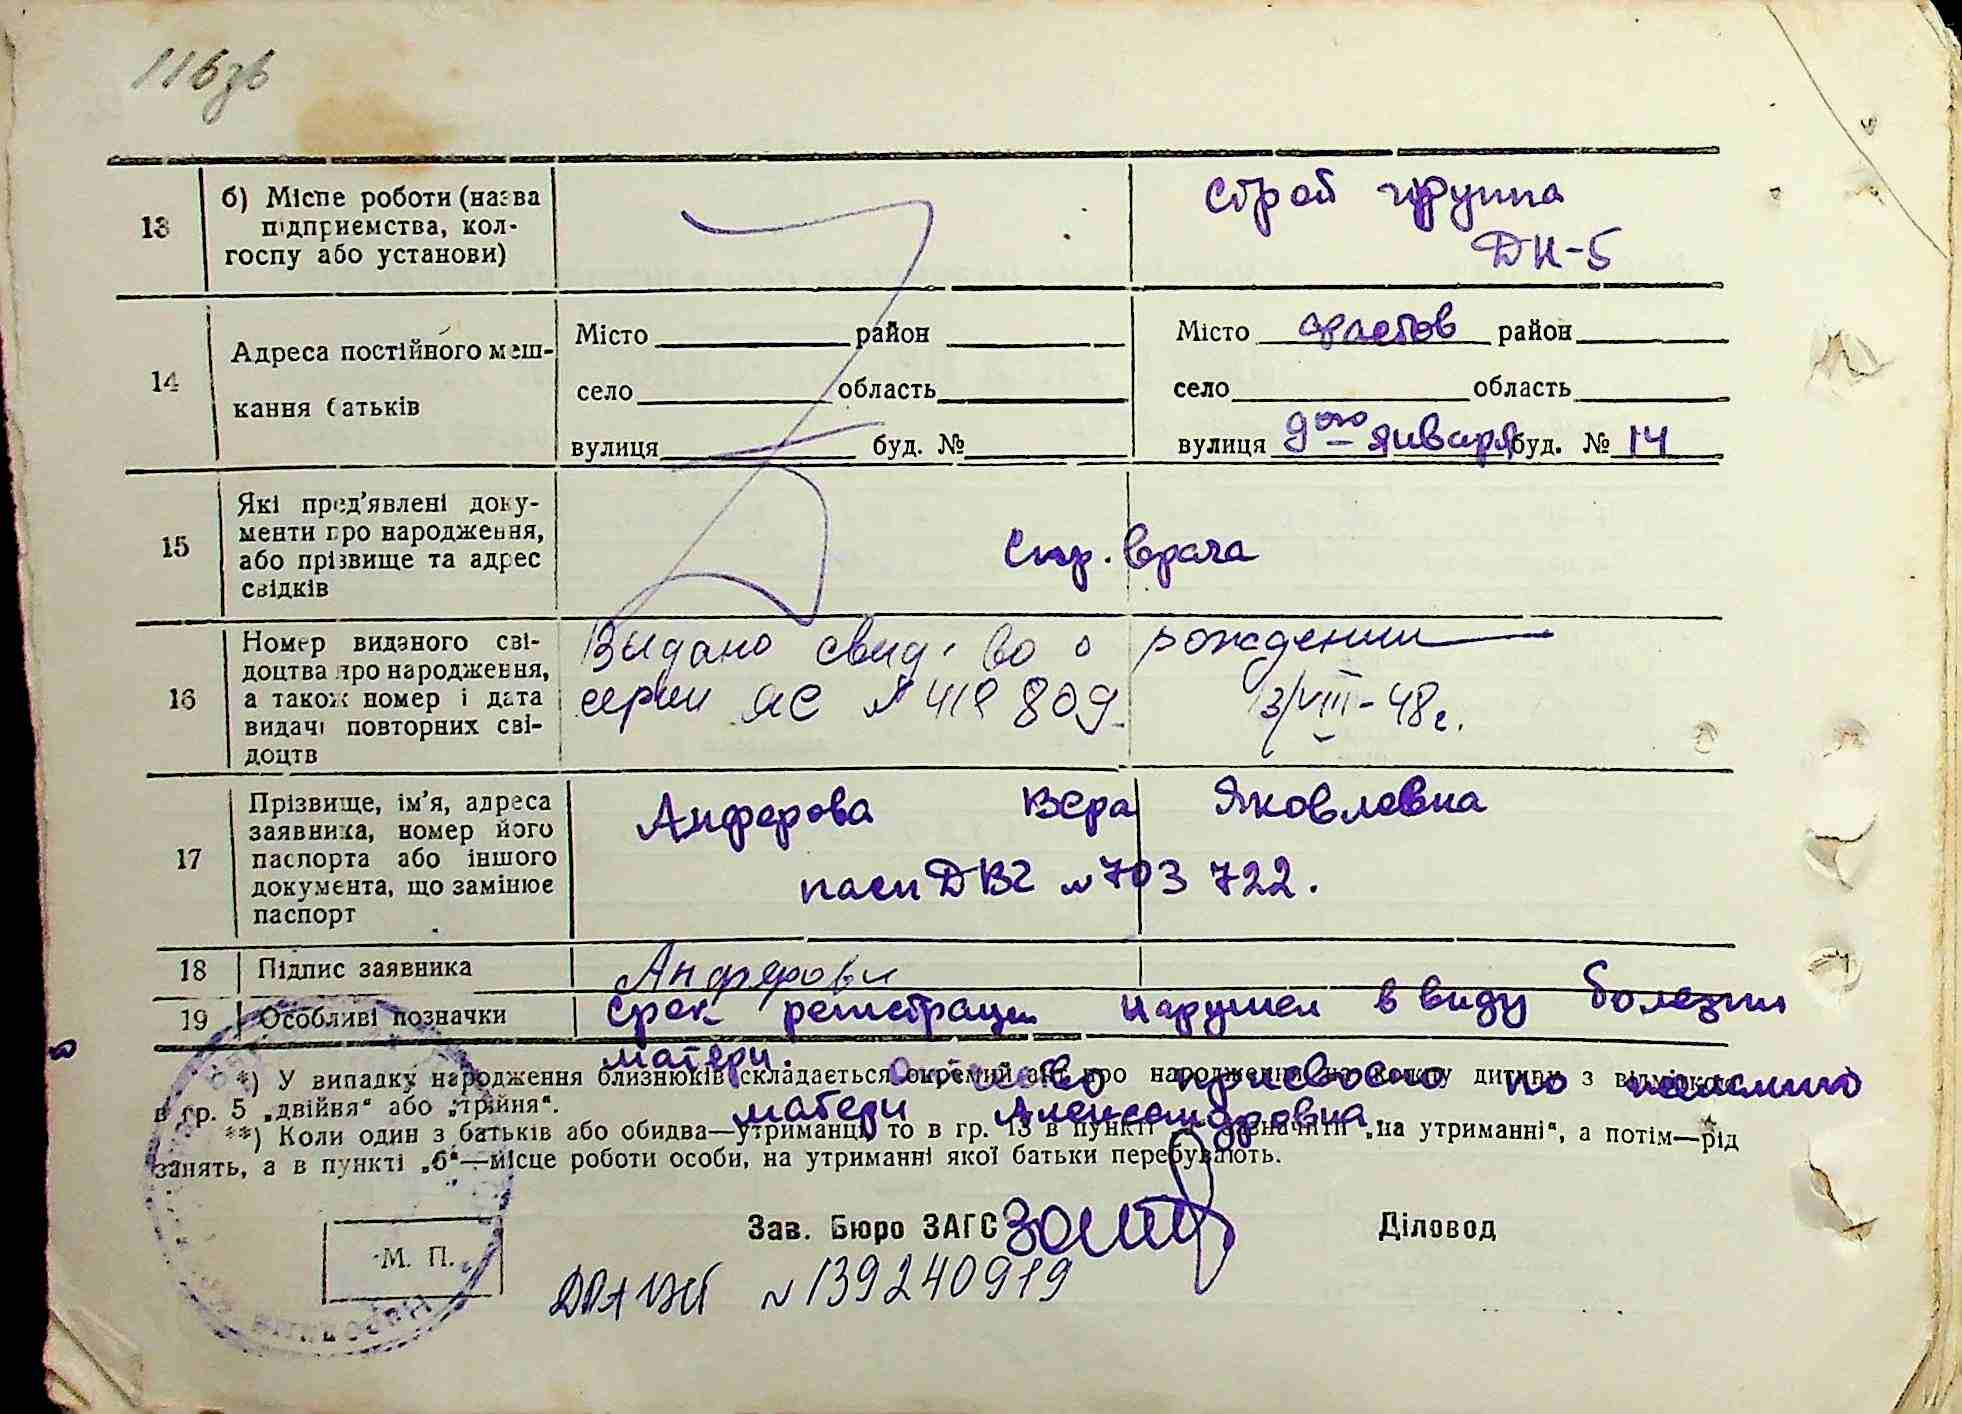 116зв
13
б) Місце роботи (назва
підприємства, кол-
госпу або установи)
Строй группа
ДН-5
14
Адреса постійного меш-
кання батьків
Місто район
село область
вулиця буд. №
Місто Фастов район
село область
вулиця 9ого января буд. № 14
15
Які пред'явлені доку-
менти про народження,
або прізвище та адрес
свідків
Спр. врача
16
Номер виданого сві-
доцтва про народження,
а також номер і дата
видачі повторних сві-
доцтв
Выдано свид-во о рождении
серии ЯС № 419 809 13/VIII-48г.
17
Прізвище, ім'я, адреса
заявника, номер його
паспорта або іншого
документа, що замінює
паспорт
Анферова Вера Яковлевна
пасп № 703 722.
18
Підпис заявника
Анферова
19
Особливі позначки
Срок регистрации нарушен в виду болезни
матери. Отчество присвоено по
матери Александровна
*) У випадку народження близнюків складається окремий акт про народження на кожну дитину з відміткою
в гр. 5 „двійня“ або „трійня“.
**) Коли один з батьків або обидва—утриманці, то в гр. 13 в пункті зазначити „на утриманні“, а потім—рід
занять, а в пункті „б“—місце роботи особи, на утриманні якої батьки перебувають.
Зав. Бюро ЗАГС
Діловод
М. П.
№ 139240919